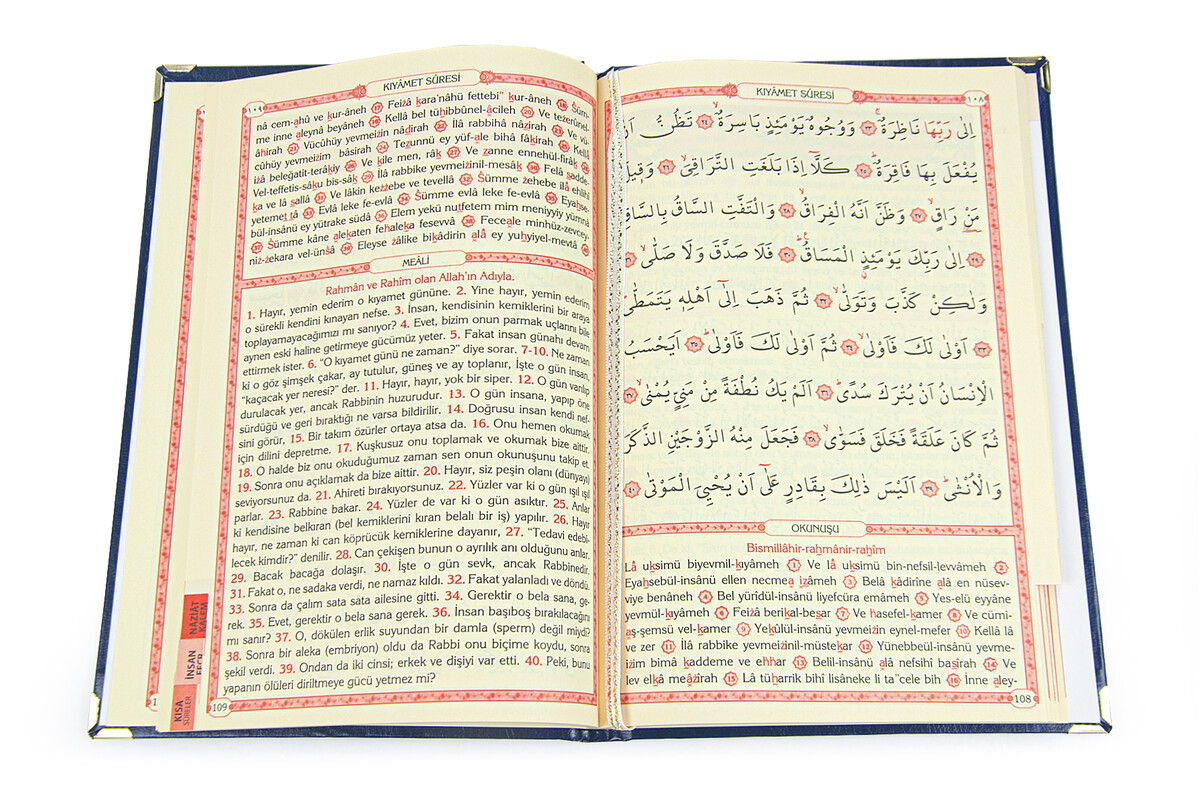 KIYÂMET SÛRESİ
١٠٨
اِلٰى رَبِّهَا نَاظِرَةٌۚ ﴿٢٣﴾ وَوُجُوهٌ يَوْمَئِذٍ بَاسِرَةٌۙ ﴿٢٤﴾ تَظُنُّ اَنْ
يُفْعَلَ بِهَا فَاقِرَةٌۜ ﴿٢٥﴾ كَلَّٓا اِذَا بَلَغَتِ التَّرَاقِيَۙ ﴿٢٦﴾ وَق۪يلَ
مَنْ رَاقٍۙ ﴿٢٧﴾ وَظَنَّ اَنَّهُ الْفِرَاقُۙ ﴿٢٨﴾ وَالْتَفَّتِ السَّاقُ بِالسَّاقِ
﴿٢٩﴾ اِلٰى رَبِّكَ يَوْمَئِذٍ الْمَسَاقُ ﴿٣٠﴾ فَلَا صَدَّقَ وَلَا صَلّٰىۙ
وَلٰكِنْ كَذَّبَ وَتَوَلّٰىۙ ﴿٣٢﴾ ثُمَّ ذَهَبَ اِلٰٓى اَهْلِه۪ يَتَمَطّٰى
﴿٣٣﴾ اَوْلٰى لَكَ فَاَوْلٰىۙ ﴿٣٤﴾ ثُمَّ اَوْلٰى لَكَ فَاَوْلٰىۜ ﴿٣٥﴾ اَيَحْسَبُ
الْاِنْسَانُ اَنْ يُتْرَكَ سُدًىۜ ﴿٣٦﴾ اَلَمْ يَكُ نُطْفَةً مِنْ مَنِيٍّ يُمْنٰىۙ ﴿٣٧﴾
ثُمَّ كَانَ عَلَقَةً فَخَلَقَ فَسَوّٰىۙ ﴿٣٨﴾ فَجَعَلَ مِنْهُ الزَّوْجَيْنِ الذَّكَرَ
وَالْاُنْثٰىۜ ﴿٣٩﴾ اَلَيْسَ ذٰلِكَ بِقَادِرٍ عَلٰٓى اَنْ يُحْيِيَ الْمَوْتٰى ﴿٤٠﴾
OKUNUŞU
Bismillâhir-rahmânir-rahîm
Lâ uksimü biyevmil-kıyâmeh 1 Ve lâ uksimü bin-nefsil-levvâmeh 2
Eyahsebül-insânü ellen necmea izâmeh 3 Belâ kâdirîne alâ en nüsev-
viye benâneh 4 Bel yürîdül-insânü liyefcüra emâmeh 5 Yes-elü eyyâne
yevmül-kıyâmeh 6 Feizâ berikal-besar 7 Ve hasefel-kamer 8 Ve cümi-
aş-şemsü vel-kamer 9 Yekûlül-insânü yevmeizin eynel-mefer 10 Kellâ lâ
ve zer 11 İlâ rabbike yevmeizinil-müstekar 12 Yünebbeül-insânü yevme-
izim bimâ kaddeme ve ehhar 13 Belil-insânü alâ nefsihî basîrah 14 Ve
lev elkâ meâzîrah 15 Lâ tüharrik bihî lisâneke li ta"cele bih 16 İnne aley-
108
KIYÂMET SÛRESİ
١٠٩
nâ cem-ahû ve kur-âneh 17 Feizâ kara'nâhü fettebi" kur-âneh 18 Süm-
me inne aleynâ beyâneh 19 Kellâ bel tühibbûnel-âcileh 20 Ve tezerûnel-
âhirah 21 Vücûhüy yevmeizin nâdirah 22 İlâ rabbihâ nâzirah 23 Ve vü-
cûhüy yevmeizim bâsirah 24 Tezunnü ey yüf-ale bihâ fâkirah 25 Kellâ
izâ beleğatit-terâkiy 26 Ve kîle men, râk 27 Ve zanne ennehül-firâk 28
Vel-teffetis-sâku bis-sâk 29 İlâ rabbike yevmeizinil-mesâk 30 Felâ sadde-
ka ve lâ sallâ 31 Ve lâkin kezzebe ve tevellâ 32 Sümme zehebe ilâ ehlihî
yetemettâ 33 Evlâ leke fe-evlâ 34 Sümme evlâ leke fe-evlâ 35 Eyahse-
bül-insânü ey yütrake südâ 36 Elem yekü nutfetem mim meniyyiy yümnâ
37 Sümme kâne alekaten fehaleka fesevvâ 38 Feceale minhüz-zevcey-
niz-zekara vel-ünsâ 39 Eleyse zâlike bikâdirin alâ ey yuhyiyel-mevtâ 40
MEÂLİ
Rahmân ve Rahîm olan Allah'ın Adıyla.
1. Hayır, yemin ederim o kıyamet gününe. 2. Yine hayır, yemin ederim
o sürekli kendini kınayan nefse. 3. İnsan, kendisinin kemiklerini bir araya
toplayamayacağımızı mı sanıyor? 4. Evet, bizim onun parmak uçlarını bile
aynen eski haline getirmeye gücümüz yeter. 5. Fakat insan günahı devam
ettirmek ister. 6. "O kıyamet günü ne zaman?" diye sorar. 7-10. Ne zaman
ki o göz şimşek çakar, ay tutulur, güneş ve ay toplanır, İşte o gün insan,
"kaçacak yer neresi?" der. 11. Hayır, hayır, yok bir siper. 12. O gün varılıp
durulacak yer, ancak Rabbinin huzurudur. 13. O gün insana, yapıp öne
sürdüğü ve geri bıraktığı ne varsa bildirilir. 14. Doğrusu insan kendi nef-
sini görür, 15. Bir takım özürler ortaya atsa da. 16. Onu hemen okumak
için dilini depretme. 17. Kuşkusuz onu toplamak ve okumak bize aittir.
18. O halde biz onu okuduğumuz zaman sen onun okunuşunu takip et.
19. Sonra onu açıklamak da bize aittir. 20. Hayır, siz peşin olanı (dünyayı)
seviyorsunuz da. 21. Ahireti bırakıyorsunuz. 22. Yüzler var ki o gün ışıl ışıl
parlar. 23. Rabbine bakar. 24. Yüzler de var ki o gün asıktır. 25. Anlar
ki kendisine belkıran (bel kemiklerini kıran belalı bir iş) yapılır. 26. Hayır
hayır, ne zaman ki can köprücük kemiklerine dayanır, 27. "Tedavi edebi-
lecek kimdir?" denilir. 28. Can çekişen bunun o ayrılık anı olduğunu anlar.
29. Bacak bacağa dolaşır. 30. İşte o gün sevk, ancak Rabbinedir.
31. Fakat o, ne sadaka verdi, ne namaz kıldı. 32. Fakat yalanladı ve döndü.
33. Sonra da çalım sata sata ailesine gitti. 34. Gerektir o bela sana, ge-
rek. 35. Evet, gerektir o bela sana gerek. 36. İnsan başıboş bırakılacağını
mı sanır? 37. O, dökülen erlik suyundan bir damla (sperm) değil miydi?
38. Sonra bir aleka (embriyon) oldu da Rabbi onu biçime koydu, sonra
şekil verdi. 39. Ondan da iki cinsi; erkek ve dişiyi var etti. 40. Peki, bunu
yapanın ölüleri diriltmeye gücü yetmez mi?
109
NAZİÂT
KALEM
İNSAN
FECR
KISA
SÛRELER